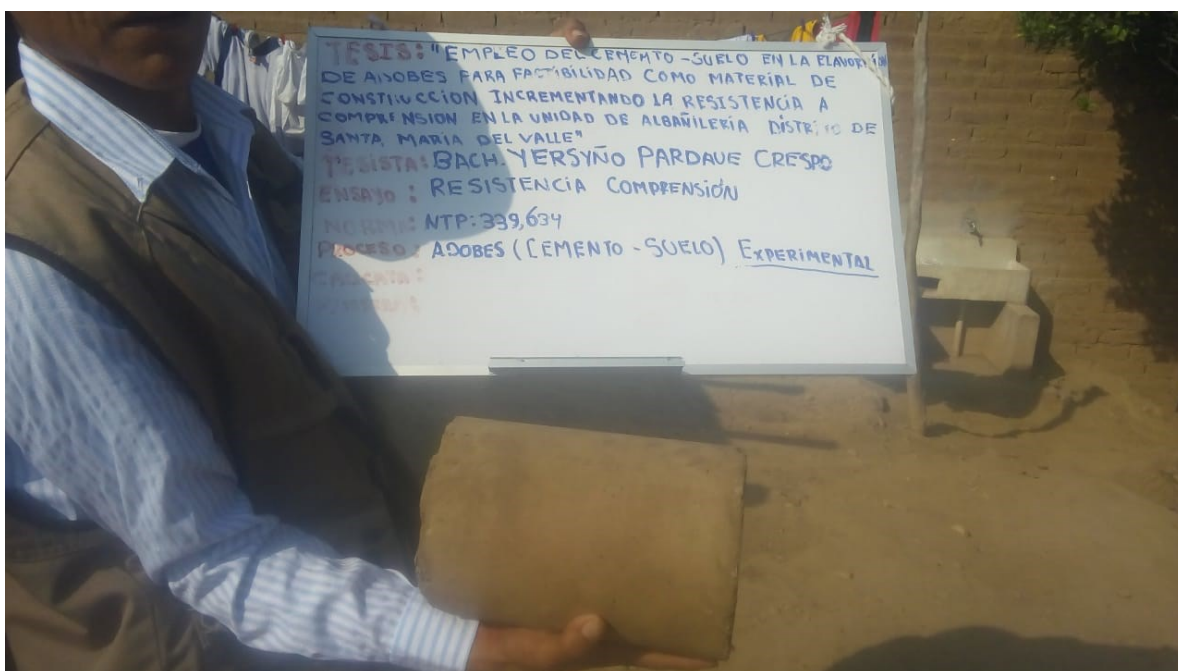 TESIS: "EMPLEO DEL CEMENTO - SUELO EN LA ELAVORACIÓN
DE ADOBES PARA FACTIBILIDAD COMO MATERIAL DE
CONSTRUCCION INCREMENTANDO LA RESISTENCIA A
COMPRENSION EN LA UNIDAD DE ALBAÑILERÍA DISTRITO DE
SANTA MARIA DEL VALLE"
TESISTA: BACH. YERSYÑO PARDAVE CRESPO
ENSAYO: RESISTENCIA COMPRENSIÓN
NORMA: NTP: 339,634
PROCESO: ADOBES (CEMENTO - SUELO) EXPERIMENTAL